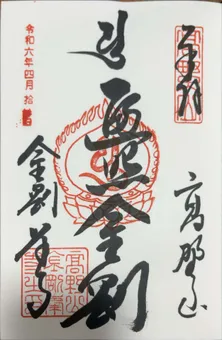 奉拜
高野山
遍照金剛
令和六年四月拾
金剛峯寺
高野山
金剛峯